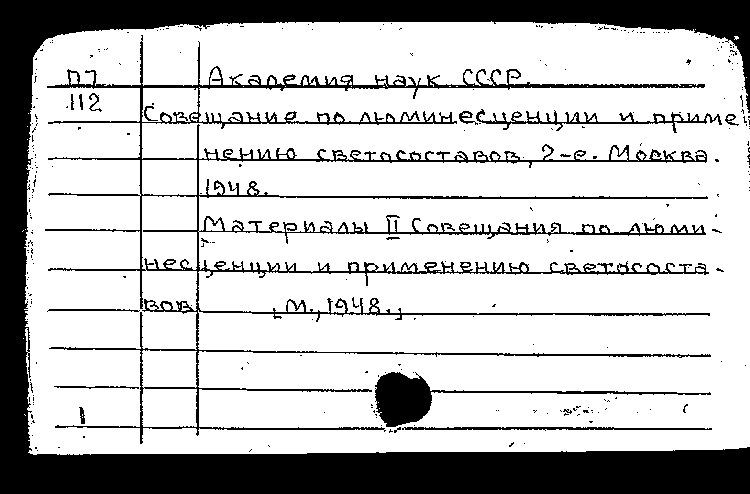 П7 Академия наук СССР.
112 Совещание по люминесценции и приме
нению светосоставов, 2-е. Москва.
1948.
Материалы II Совещания по люми-
несценции и применению светососта-
вов [М., 1948.]
1